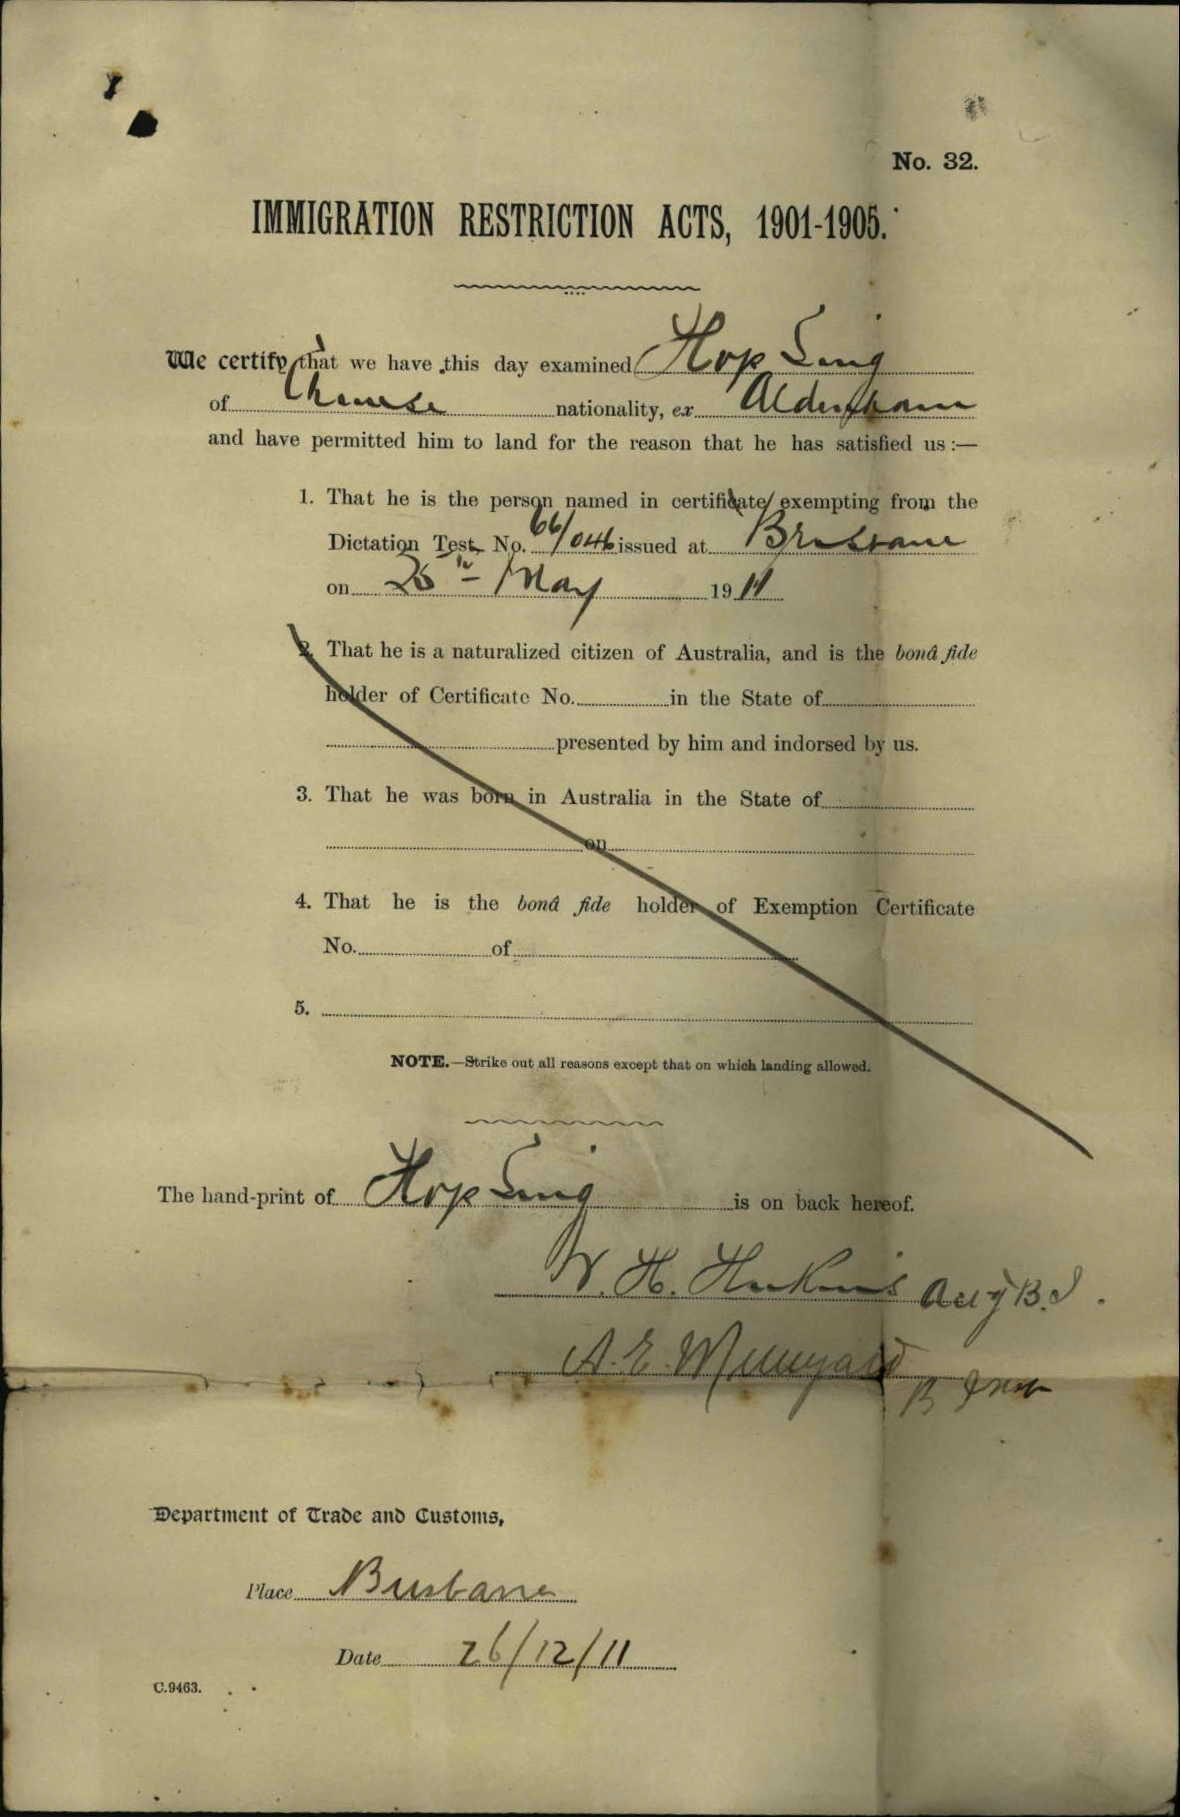 No. 32.
IMMIGRATION RESTRICTION ACTS, 1901-1905.
We certify that we have this day examined Hop Sing
of Chinese nationality, ex Aldenham
and have permitted him to land for the reason that he has satisfied us :—
1. That he is the person named in certificate exempting from the
Dictation Test No. 66/046 issued at Brisbane
on May 1911
2. That he is a naturalized citizen of Australia, and is the bonâ fide
holder of Certificate No. in the State of
presented by him and indorsed by us.
3. That he was born in Australia in the State of
on
4. That he is the bonâ fide holder of Exemption Certificate
No. of
5.
NOTE.—Strike out all reasons except that on which landing allowed.
The hand-print of Hop Sing is on back hereof.
W. H.
A. E.
Department of Trade and Customs,
Place Brisbane
Date 26/12/11
C.9463.